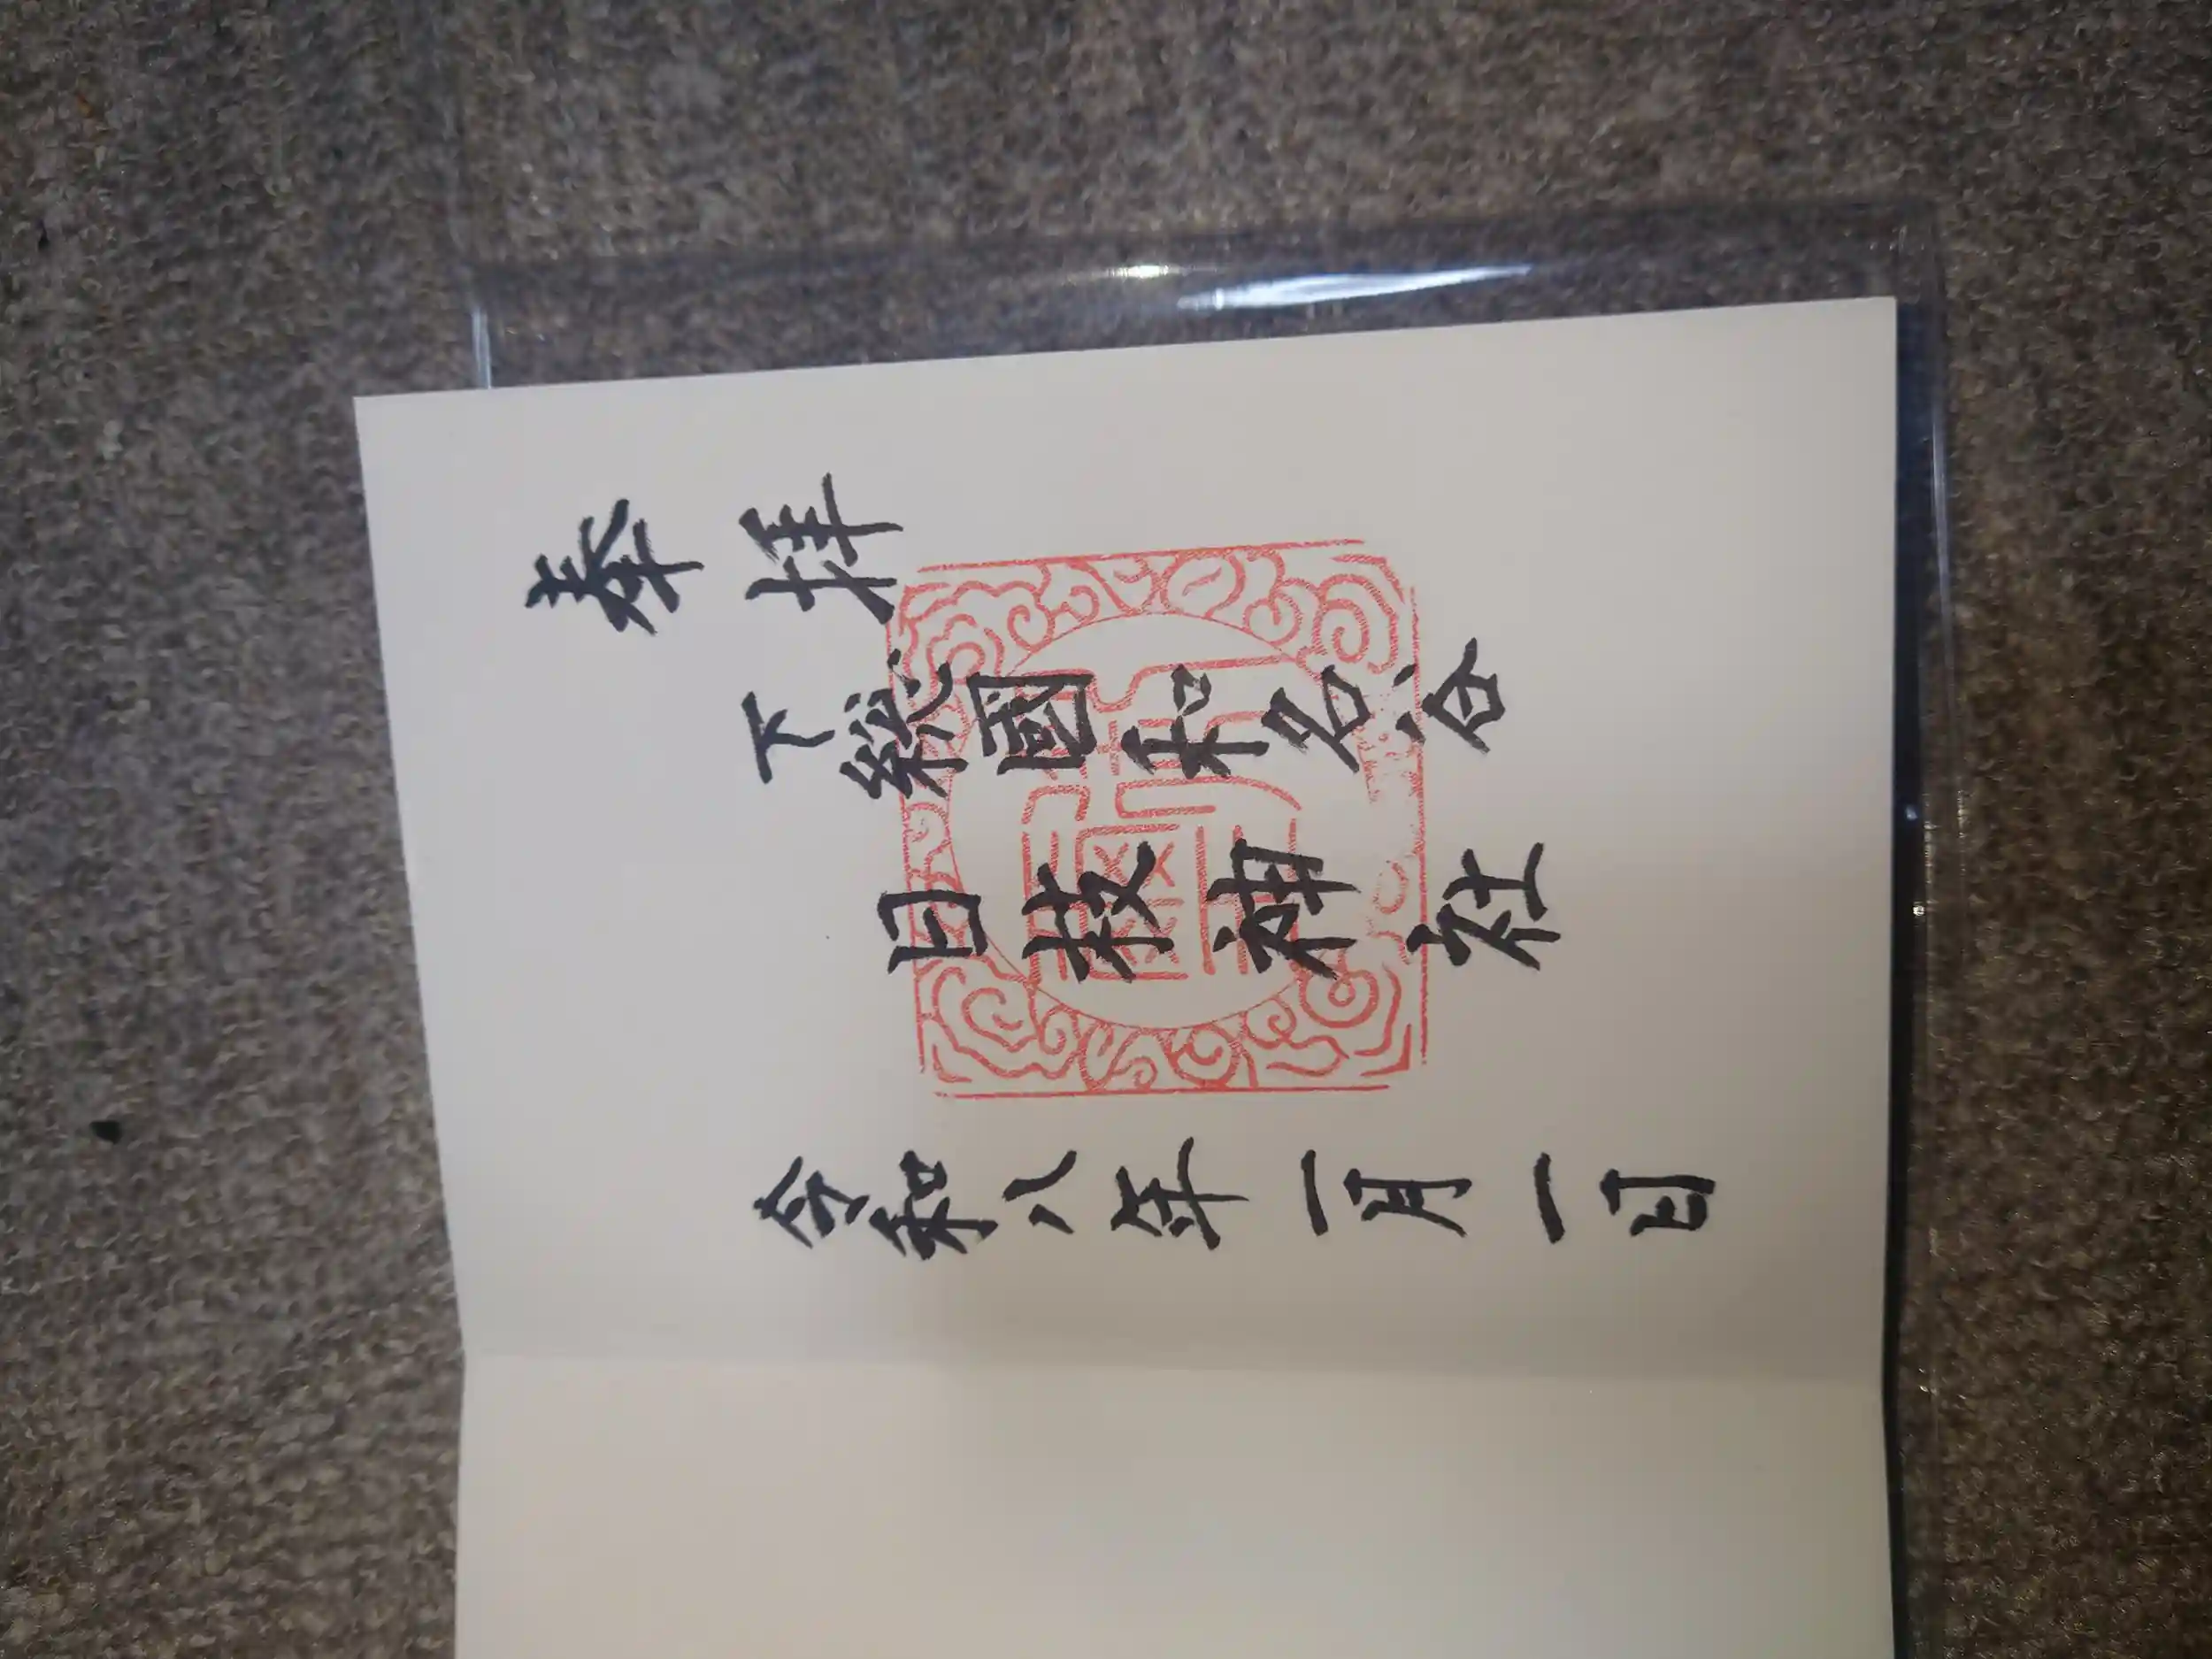 奉拝
下総國和名ヶ谷
日枝神社
令和八年一月一日